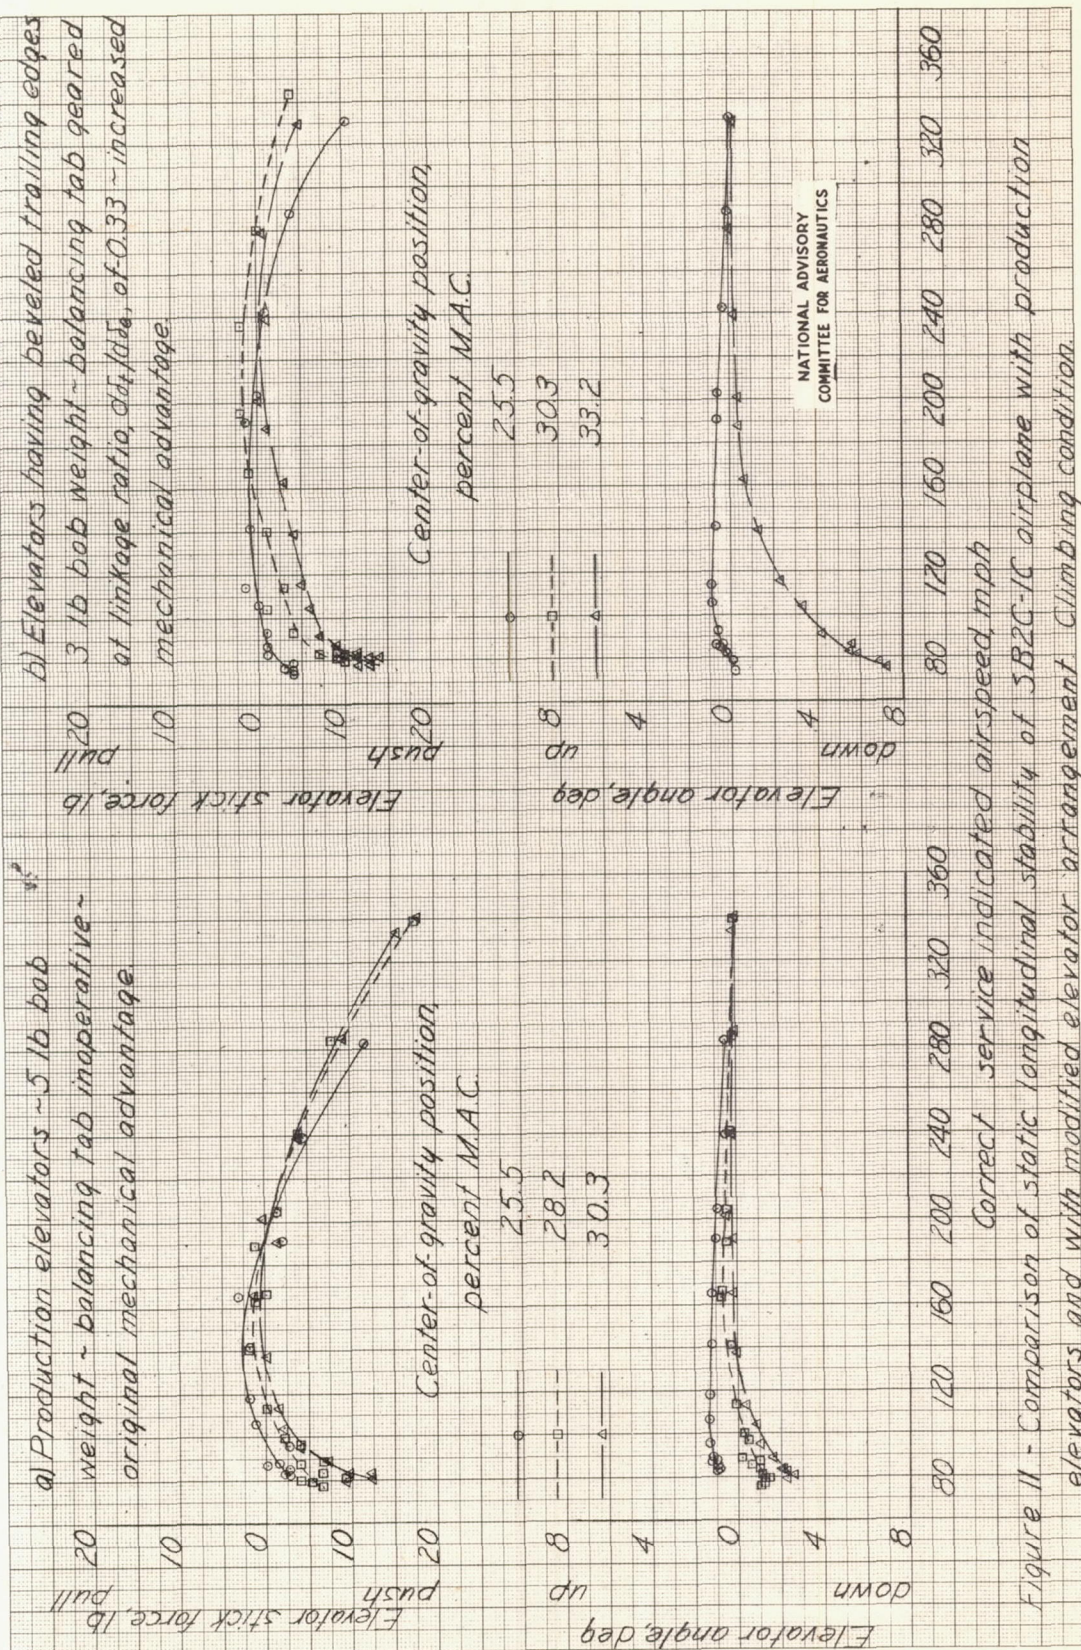 a) Production elevators ~ 5 lb bob
weight ~ balancing tab inoperative ~
original mechanical advantage.
20
10
0
10
20
pull
push
Elevator stick force, lb
Center-of-gravity position,
percent M.A.C.
25.5
28.2
30.3
8
4
0
4
8
up
down
Elevator angle, deg
80 120 160 200 240 280 320 360
b) Elevators having beveled trailing edges
3 lb bob weight ~ balancing tab geared
at linkage ratio, dδt/dδe, of -0.33 ~ increased
mechanical advantage.
20
10
0
10
20
pull
push
Elevator stick force, lb
Center-of-gravity position,
percent M.A.C.
25.5
30.3
33.2
8
4
0
4
8
up
down
Elevator angle, deg
NATIONAL ADVISORY
COMMITTEE FOR AERONAUTICS
80 120 160 200 240 280 320 360
Correct service indicated airspeed, mph
Figure 11 - Comparison of static longitudinal stability of SB2C-1C airplane with production
elevators and with modified elevator arrangement. Climbing condition.